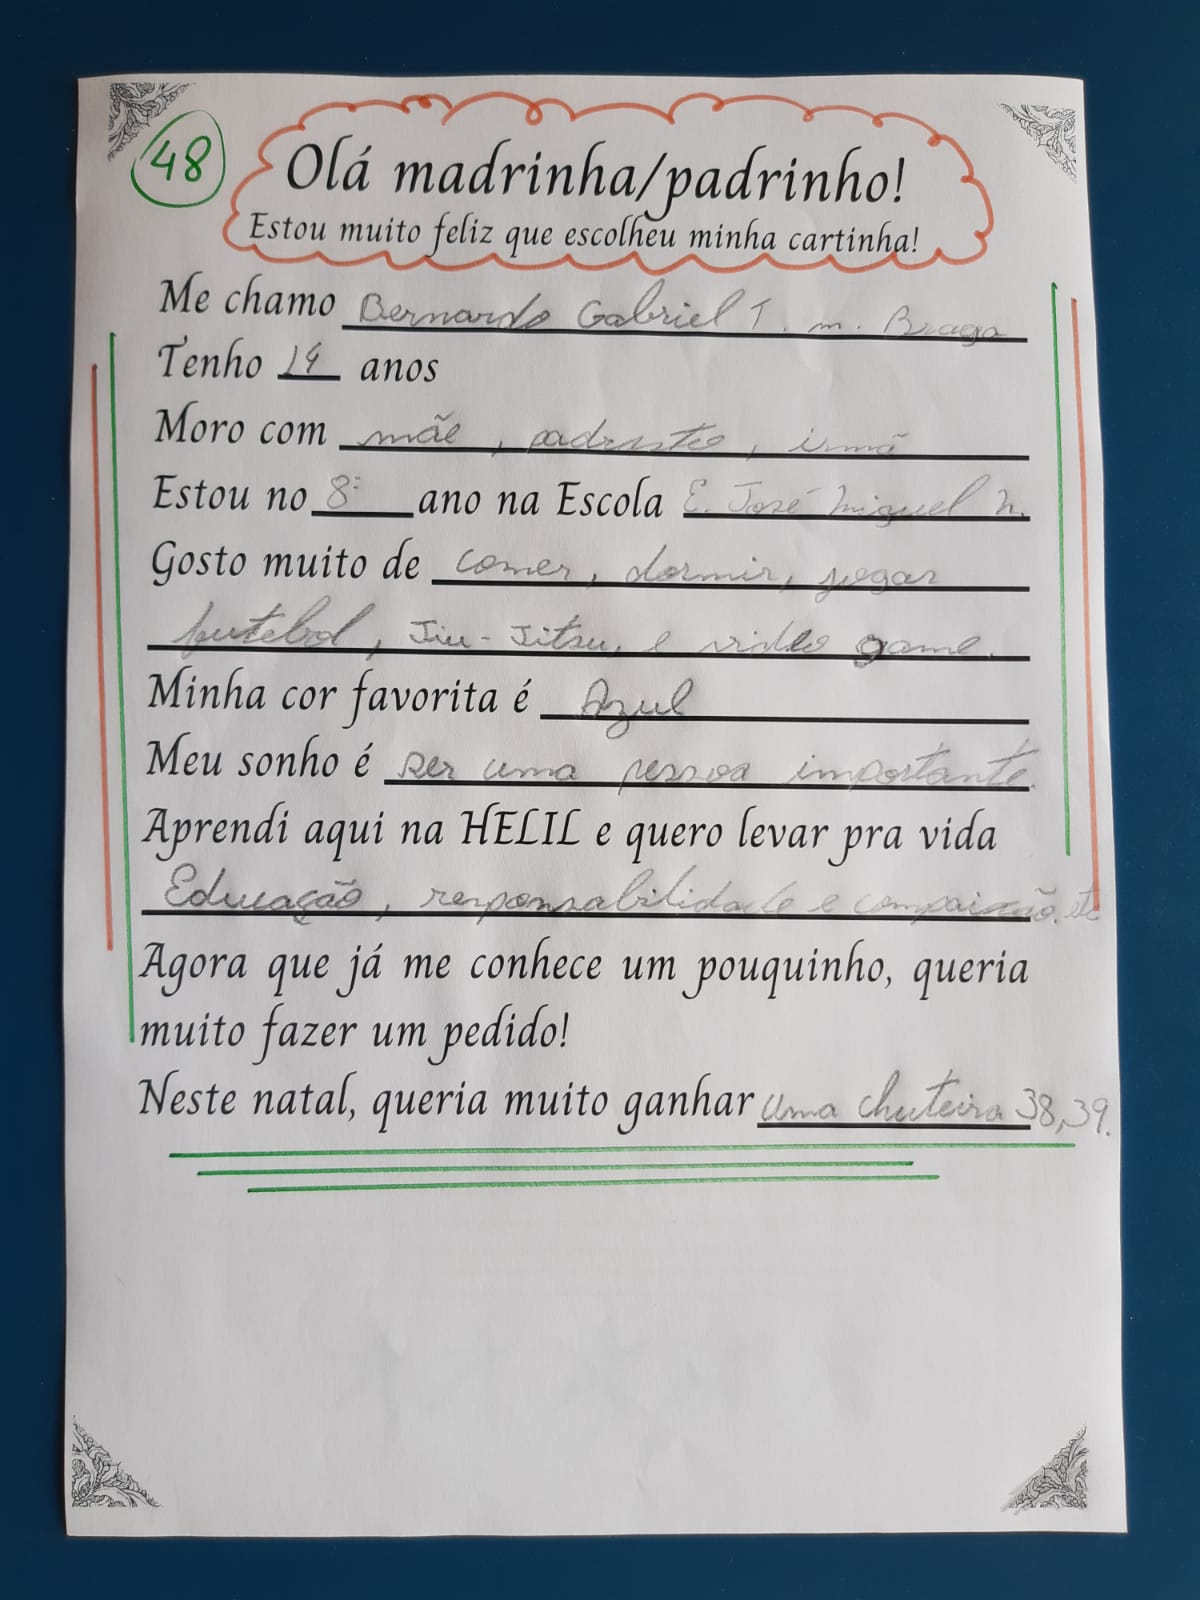 48
Olá madrinha/padrinho!
Estou muito feliz que escolheu minha cartinha!
Me chamo Bernardo Gabriel T. m. Braga
Tenho 14 anos
Moro com mãe, padrasto, irmã
Estou no 8º ano na Escola E. José Miguel N.
Gosto muito de comer, dormir, jogar
futebol, Jiu-Jitsu, e video game.
Minha cor favorita é Azul
Meu sonho é ser uma pessoa importante.
Aprendi aqui na HELIL e quero levar pra vida
Educação, responsabilidade e compaixão. etc
Agora que já me conhece um pouquinho, queria
muito fazer um pedido!
Neste natal, queria muito ganhar uma chuteira 38,39.